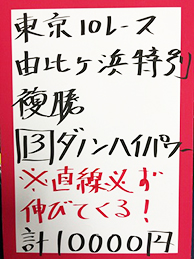 東京10レース
由比ヶ浜特別
複勝
13 ダノンハイパワー
※直線必ず
伸びてくる!
計10000円